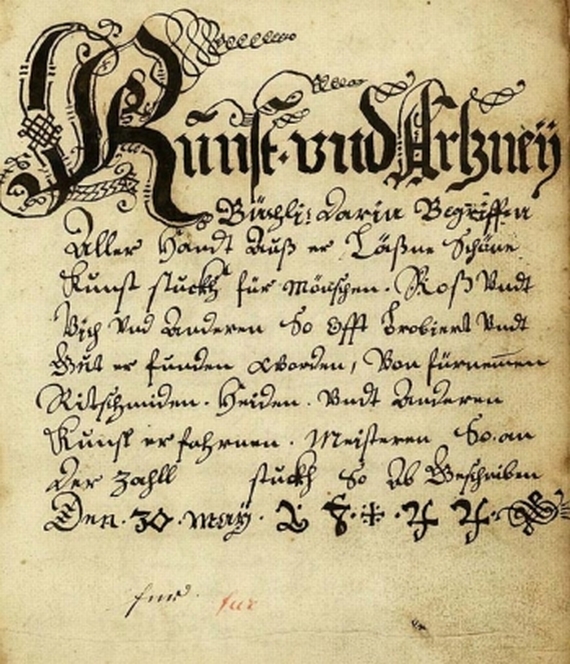 Kunst. vnd Artzneÿ
Büöchli: darin Begriffen
Aller Handt Auß er Läßne Schöne
Kunst stuckh für Mönschen. Roß Vndt
Vich Vnd Anderen So Offt Brobiert Vndt
Gut er funden Worden, Von fürnemen
Ritschmiden. Heiden. Vndt Anderen
Kunst erfahrnen. Meisteren So. an
der Zahll stuckh So Ab Geschriben
Den. 30. Maÿ.